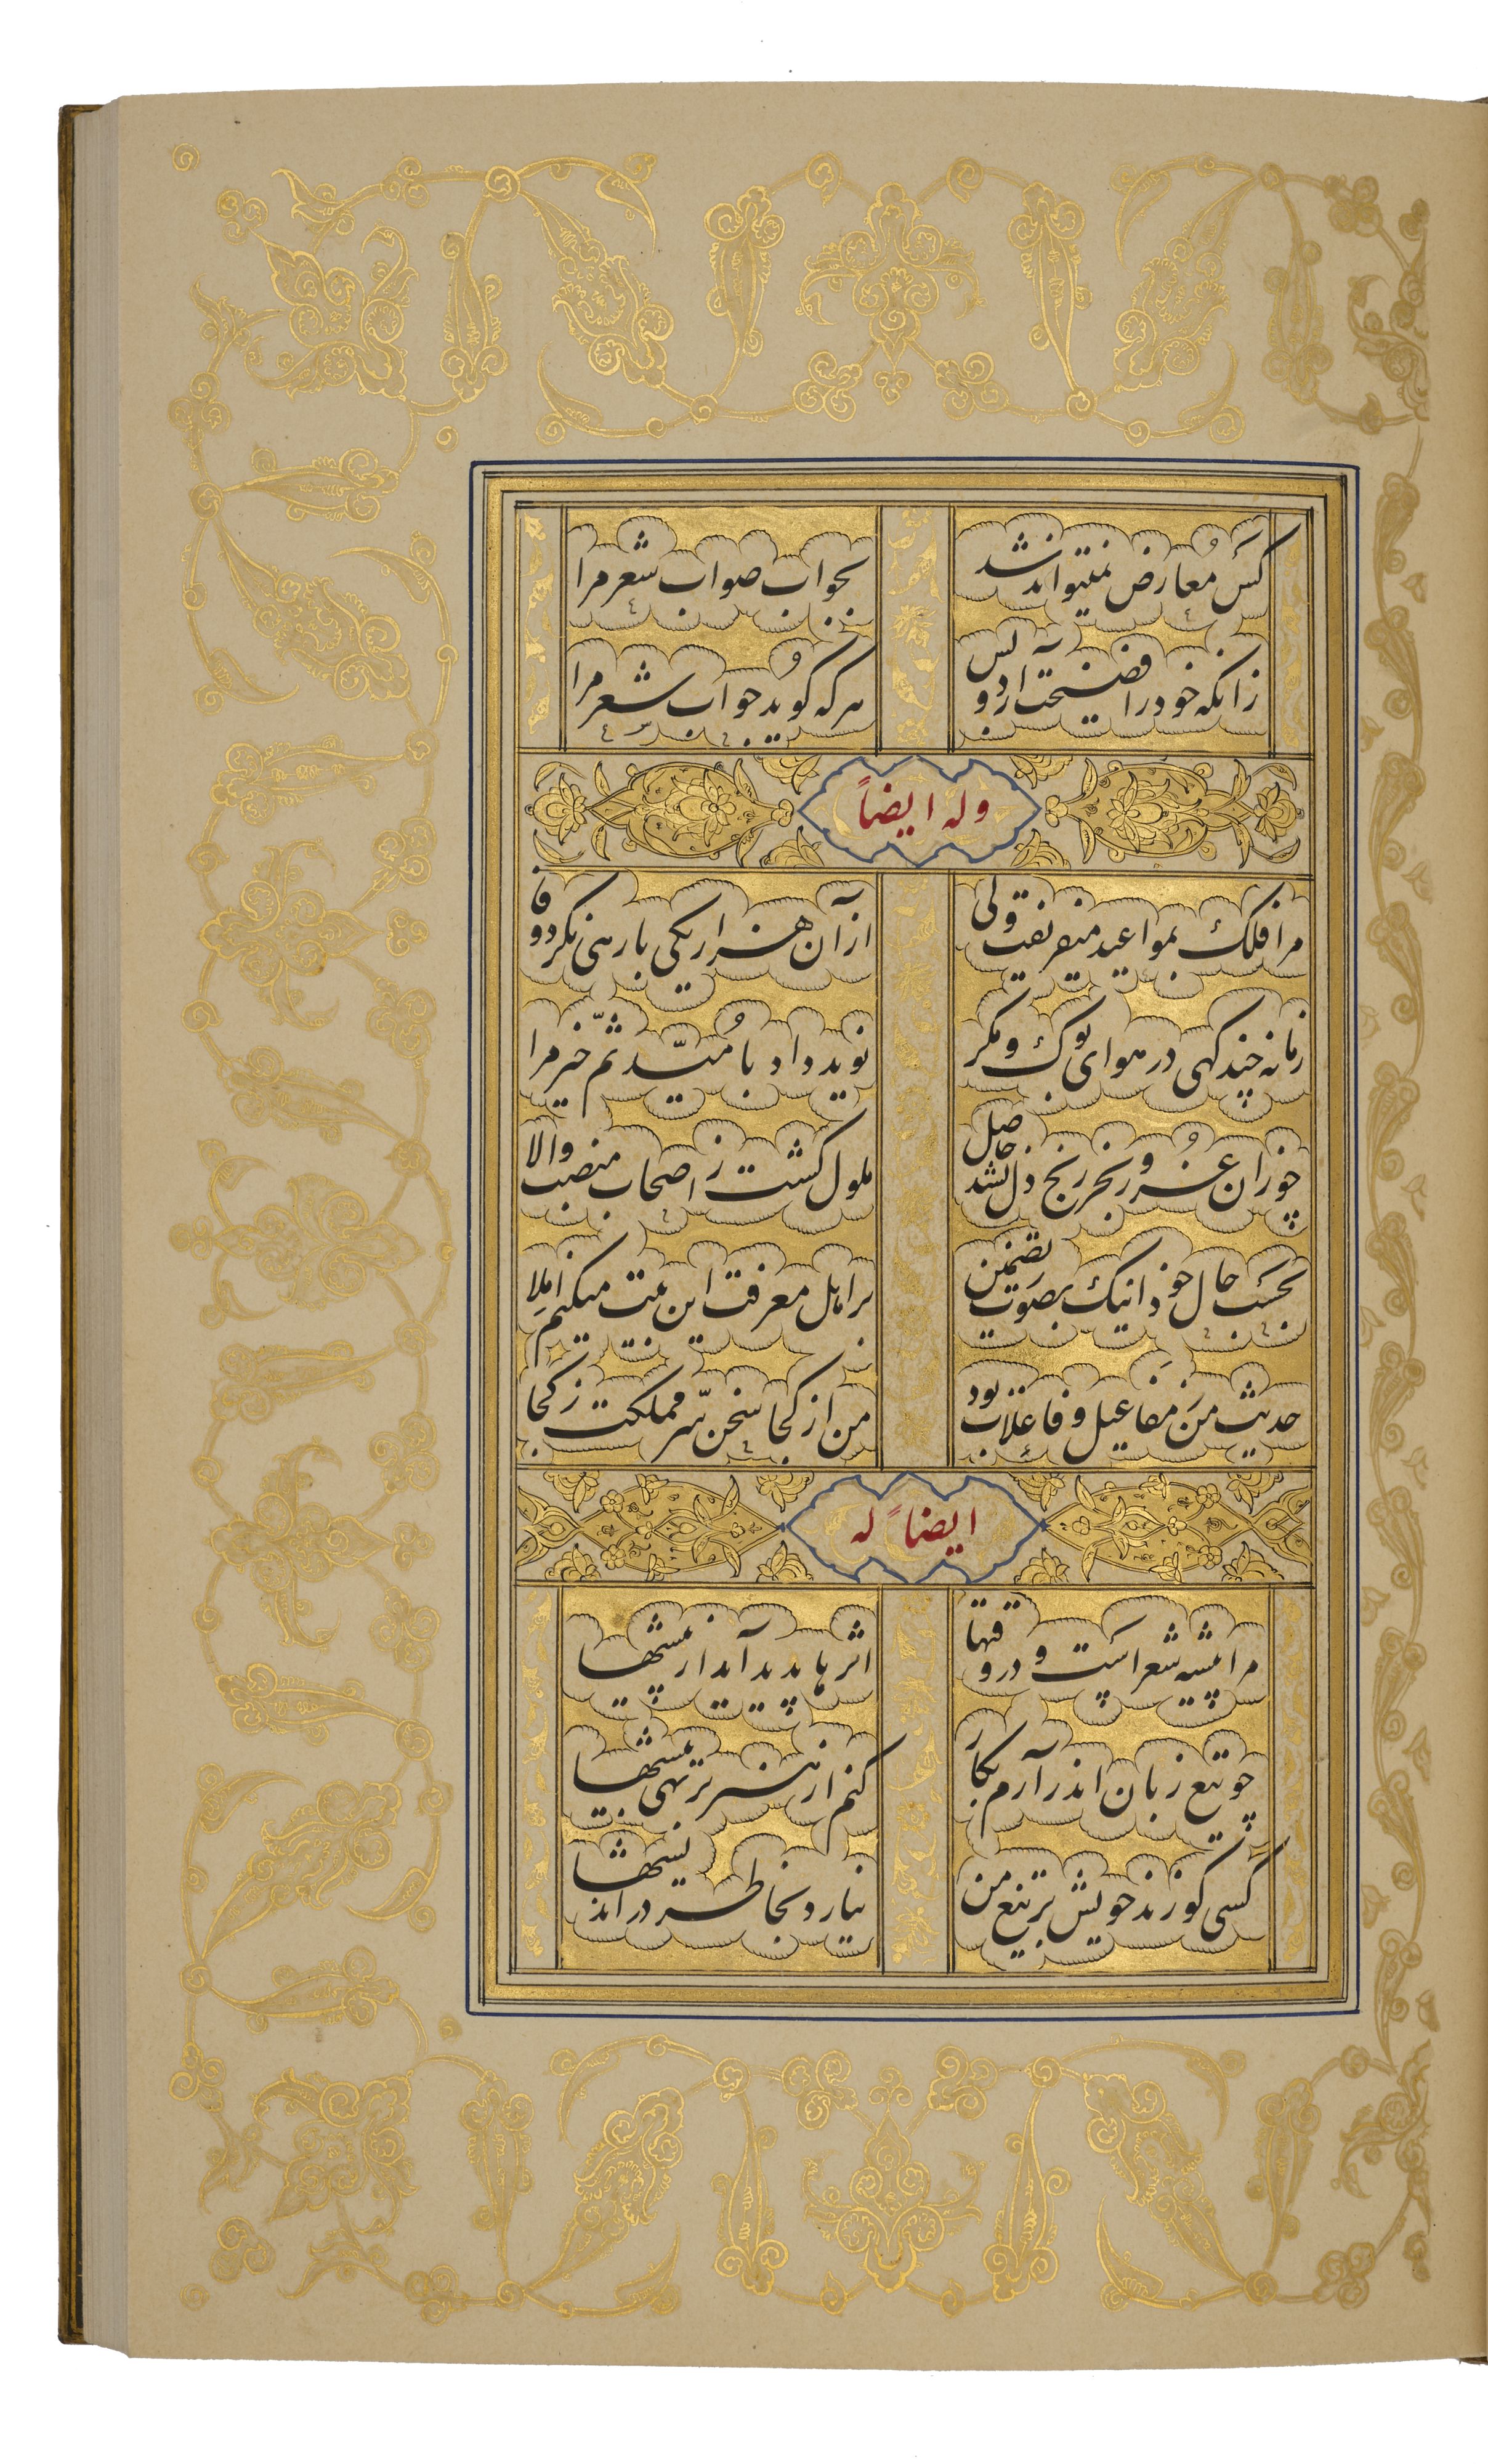 کس معارض نمیتواند شد
بجواب صواب شعر مرا
زانکه خود را فضیحت آرد و بس
هر که گوید جواب شعر مرا
وله ایضاً
مرا فلک بمواعید میفریفت ولی
از آن هزار یکی بارهی نکرد وفا
زمانه چند گهی در هوای بوک و مگر
نوید داد بامید ثمّ خیر مرا
چو زان غرور بجز رنج دل نشد حاصل
ملول گشت ز اصحاب منصب والا
بحسب حال خود اینک بصورت تضمین
بر اهل معرفت این بیت میکنم املا
حدیث من ز مفاعیل و فاعلات بود
من از کجا سخن سرّ مملکت ز کجا
ایضاً له
مرا پیشه شعر است و در وقتها
اثرها پدید آید از پیشها
چو تیغ زبان اندر آرم بکار
کنم از هنر بر تهی بیشها
کسی کو زند خویش بر تیغ من
نیارد بخاطر در اندیشها